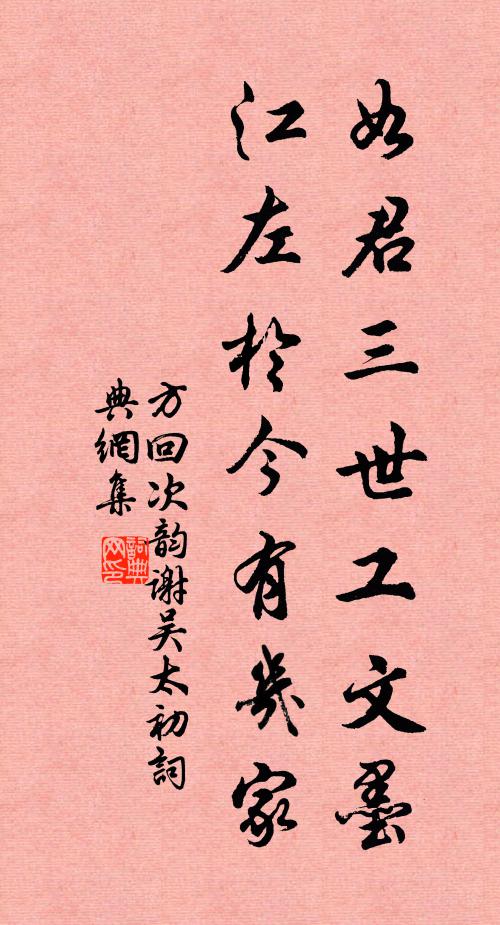 如君三世工文墨
江左於今有幾家
方回次韵謝吴太初詞
典網集
詞典
网印